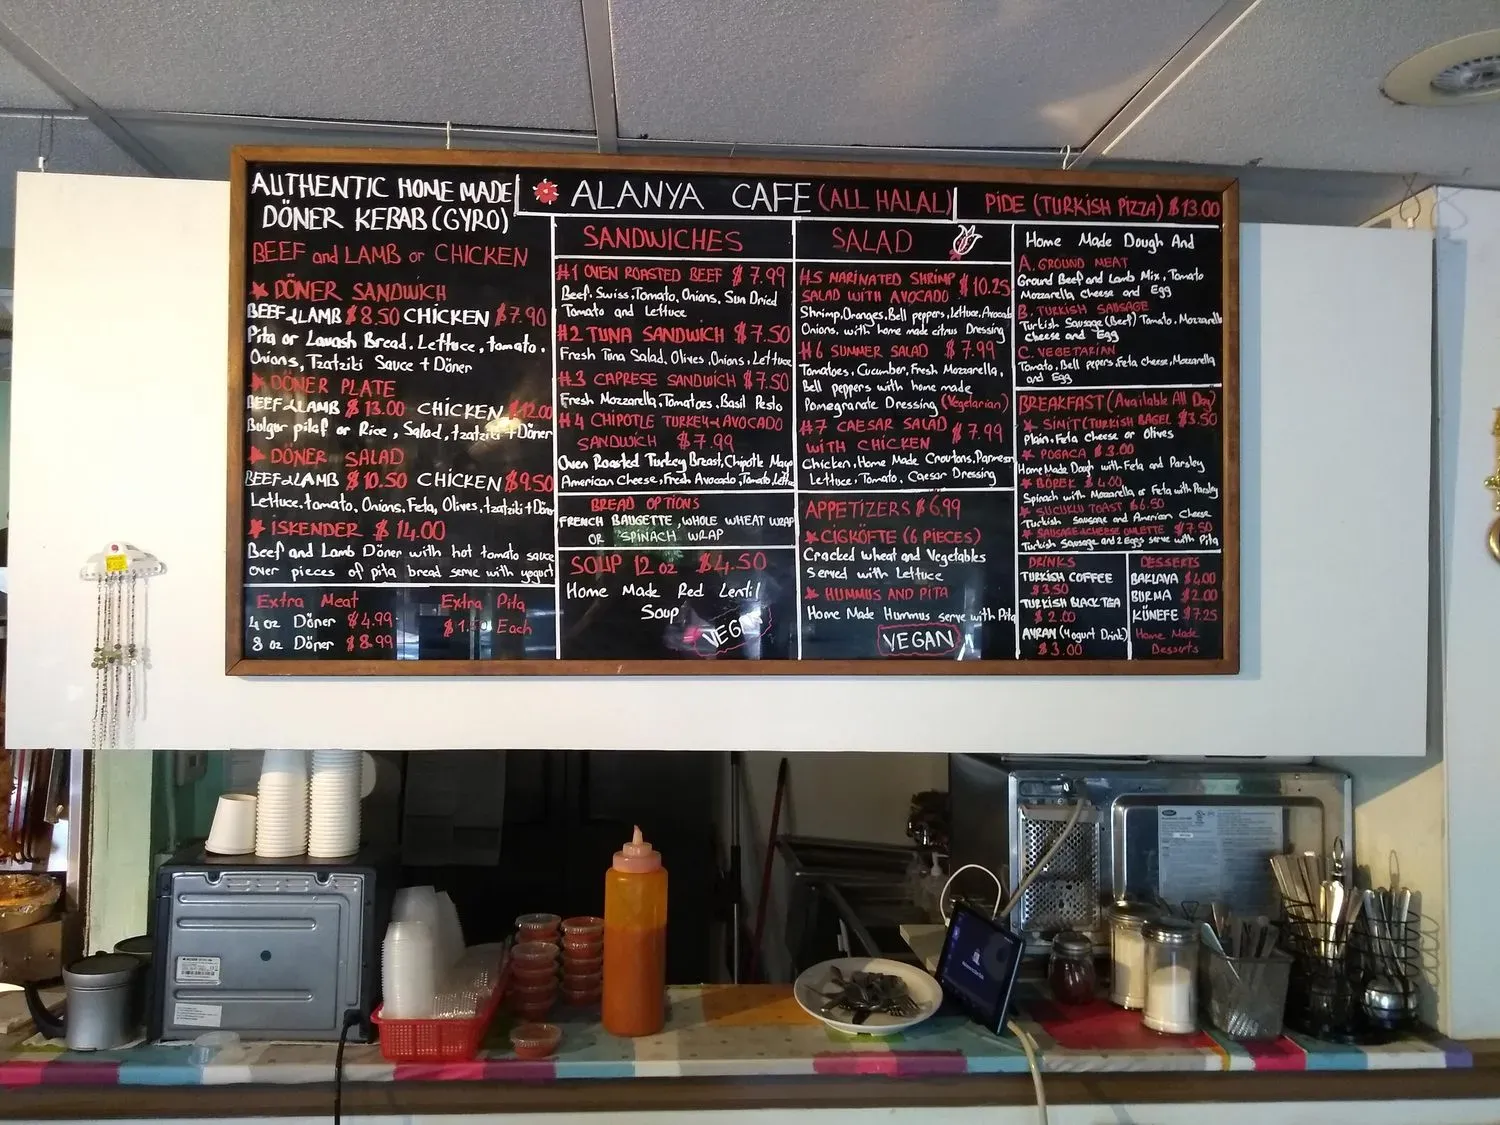 AUTHENTIC HOME MADE
DÖNER KEBAB (GYRO)
BEEF and LAMB or CHICKEN
DÖNER SANDWiCH
BEEF & LAMB $8.50 CHiCKEN $7.90
Pita or Lavash Bread, Lettuce, tomato,
Onions, Tzatziki Sauce + Döner
DÖNER PLATE
BEEF & LAMB $13.00 CHICKEN $12.00
Bulgur pilaf or Rice, Salad, tzatziki + Döner
DÖNER SALAD
BEEF & LAMB $10.50 CHiCKEN $9.50
Lettuce, tomato, Onions, Feta, Olives, tzatziki + Döner
İSKENDER $14.00
Beef and Lamb Döner with hot tomato sauce
over pieces of pita bread serve with yogurt
Extra Meat
4 oz Döner $4.99
8 oz Döner $8.99
Extra Pita
Each
ALANYA CAFE (ALL HALAL)
SANDWICHES
#1 OVEN ROASTED BEEF $7.99
Beef, Swiss, Tomato, Onions, Sun Dried
Tomato and Lettuce
#2 TUNA SANDWICH $7.50
Fresh Tuna Salad, Olives, Onions, Lettuce
#3 CAPRESE SANDWiCH $7.50
Fresh Mozzarella, Tomatoes, Basil Pesto
#4 CHIPOTLE TURKEY & AVOCADO
SANDWICH $7.99
Oven Roasted Turkey Breast, Chipotle Mayo
American Cheese, Fresh Avocado, Tomato, Lettuce
BREAD OPTIONS
FRENCH BAUGETTE, WHOLE WHEAT WRAP
OR SPINACH WRAP
SOUP 12 oz $4.50
Home Made Red Lentil
Soup
VEGAN
SALAD
#5 MARINATED SHRIMP $10.25
SALAD WITH AVOCADO
Shrimp, Oranges, Bell peppers, Lettuce, Avocado
Onions, with home made citrus Dressing
#6 SUMMER SALAD $7.99
Tomatoes, Cucumber, Fresh Mozzarella,
Bell peppers with home made
Pomegranate Dressing (Vegetarian)
#7 CAESAR SALAD $7.99
WITH CHICKEN
Chicken, Home Made Croutons, Parmesan
Lettuce, Tomato, Caesar Dressing
APPETİZERS $6.99
CIGKÖFTE (6 PIECES)
Cracked wheat and Vegetables
Served with Lettuce
HUMMUS AND PITA
Home Made Hummus serve with Pita
VEGAN
PIDE (TURKISH PIZZA) $13.00
Home Made Dough And
A. GROUND MEAT
Ground Beef and Lamb Mix, Tomato
Mozzarella Cheese and Egg
B. TURKISH SAUSAGE
Turkish Sausage (Beef) Tomato, Mozzarella
cheese and Egg
C. VEGETARIAN
Tomato, Bell pepers, Feta cheese, Mozzarella
and Egg
BREAKFAST (Available All Day)
SIMIT (TURKISH BAGEL $3.50
Plain, Feta Cheese or Olives
POGACA $3.00
Home Made Dough with Feta and Parsley
BÖREK $4.00
Spinach with Mozzarella or Feta with Parsley
SUCUKLU TOAST $6.50
Turkish Sausage and American Cheese
SAUSAGE & CHEESE OMLETTE $7.50
Turkish Sausage and 2 Eggs serve with Pita
DRINKS
TURKISH COFFEE
$3.50
TURKISH BLACK TEA
$2.00
AYRAN (Yogurt Drink)
$3.00
DESSERTS
BAKLAVA $4.00
BURMA $2.00
KÜNEFE $7.25
Home Made
Desserts